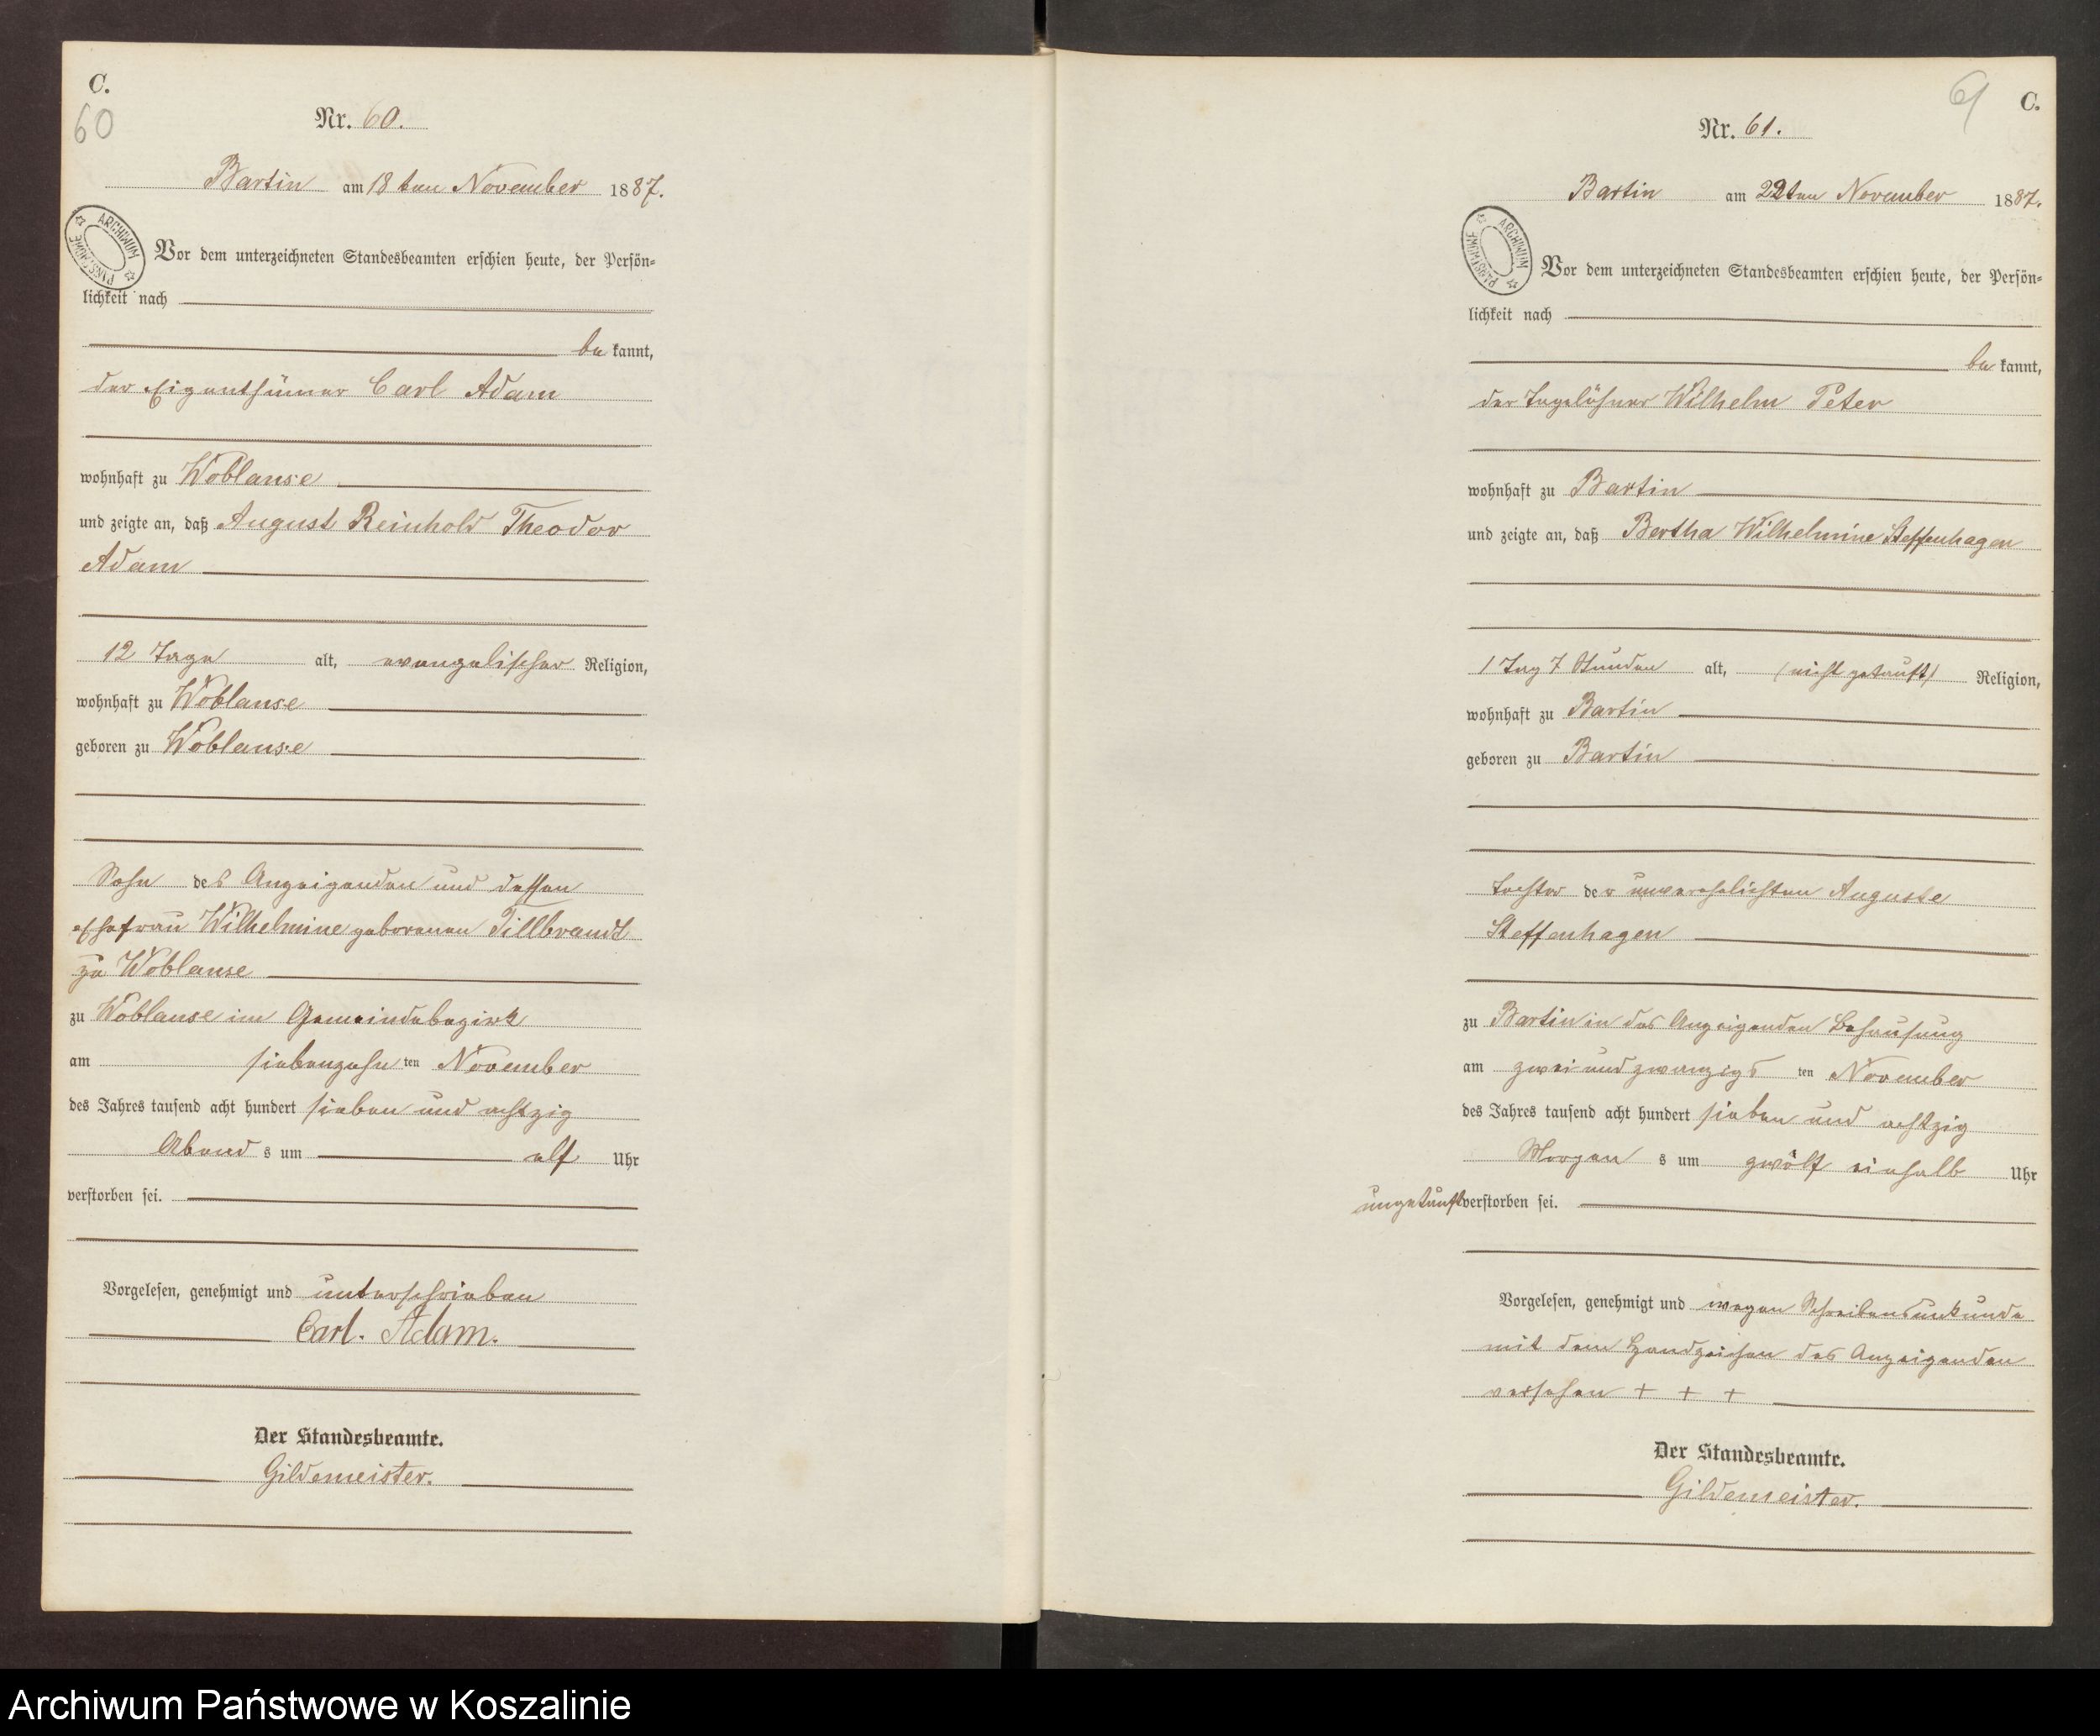 C.
60
Nr. 60.
Bartin am 18ten November 1887.
ARCHIWUM PAŃSTWOWE
Vor dem unterzeichneten Standesbeamten erschien heute, der Persön=
lichkeit nach
be kannt,
der Eigenthümer Carl Adam
wohnhaft zu Woblanse
und zeigte an, daß August Reinhold Theodor
Adam
12 Tage alt, evangelischer Religion,
wohnhaft zu Woblanse
geboren zu Woblanse
Sohn des Anzeigenden und dessen
Ehefrau Wilhelmine geborenen Tillbrandt
zu Woblanse
zu Woblanse im Gemeindebezirk
am siebenzehn ten November
des Jahres tausend acht hundert sieben und achtzig
Abend s um elf Uhr
verstorben sei.
Vorgelesen, genehmigt und unterschrieben
Carl. Adam.
Der Standesbeamte.
Gildemeister.
61
C.
Nr. 61.
Bartin am 22ten November 1887.
ARCHIWUM PAŃSTWOWE
Vor dem unterzeichneten Standesbeamten erschien heute, der Persön=
lichkeit nach
be kannt,
der Tagelöhner Wilhelm Peter
wohnhaft zu Bartin
und zeigte an, daß Bertha Wilhelmine Steffenhagen
1 Tag 7 Stunden alt, (nicht getauft) Religion,
wohnhaft zu Bartin
geboren zu Bartin
Tochter der unverehelichten Auguste
Steffenhagen
zu Bartin in des Anzeigenden Behausung
am zwei und zwanzigs ten November
des Jahres tausend acht hundert sieben und achtzig
Morgen s um zwölf einhalb Uhr
ungetauft verstorben sei.
Vorgelesen, genehmigt und wegen Schreibensunkunde
mit dem Handzeichen des Anzeigenden
versehen + + +
Der Standesbeamte.
Gildemeister.
Archiwum Państwowe w Koszalinie